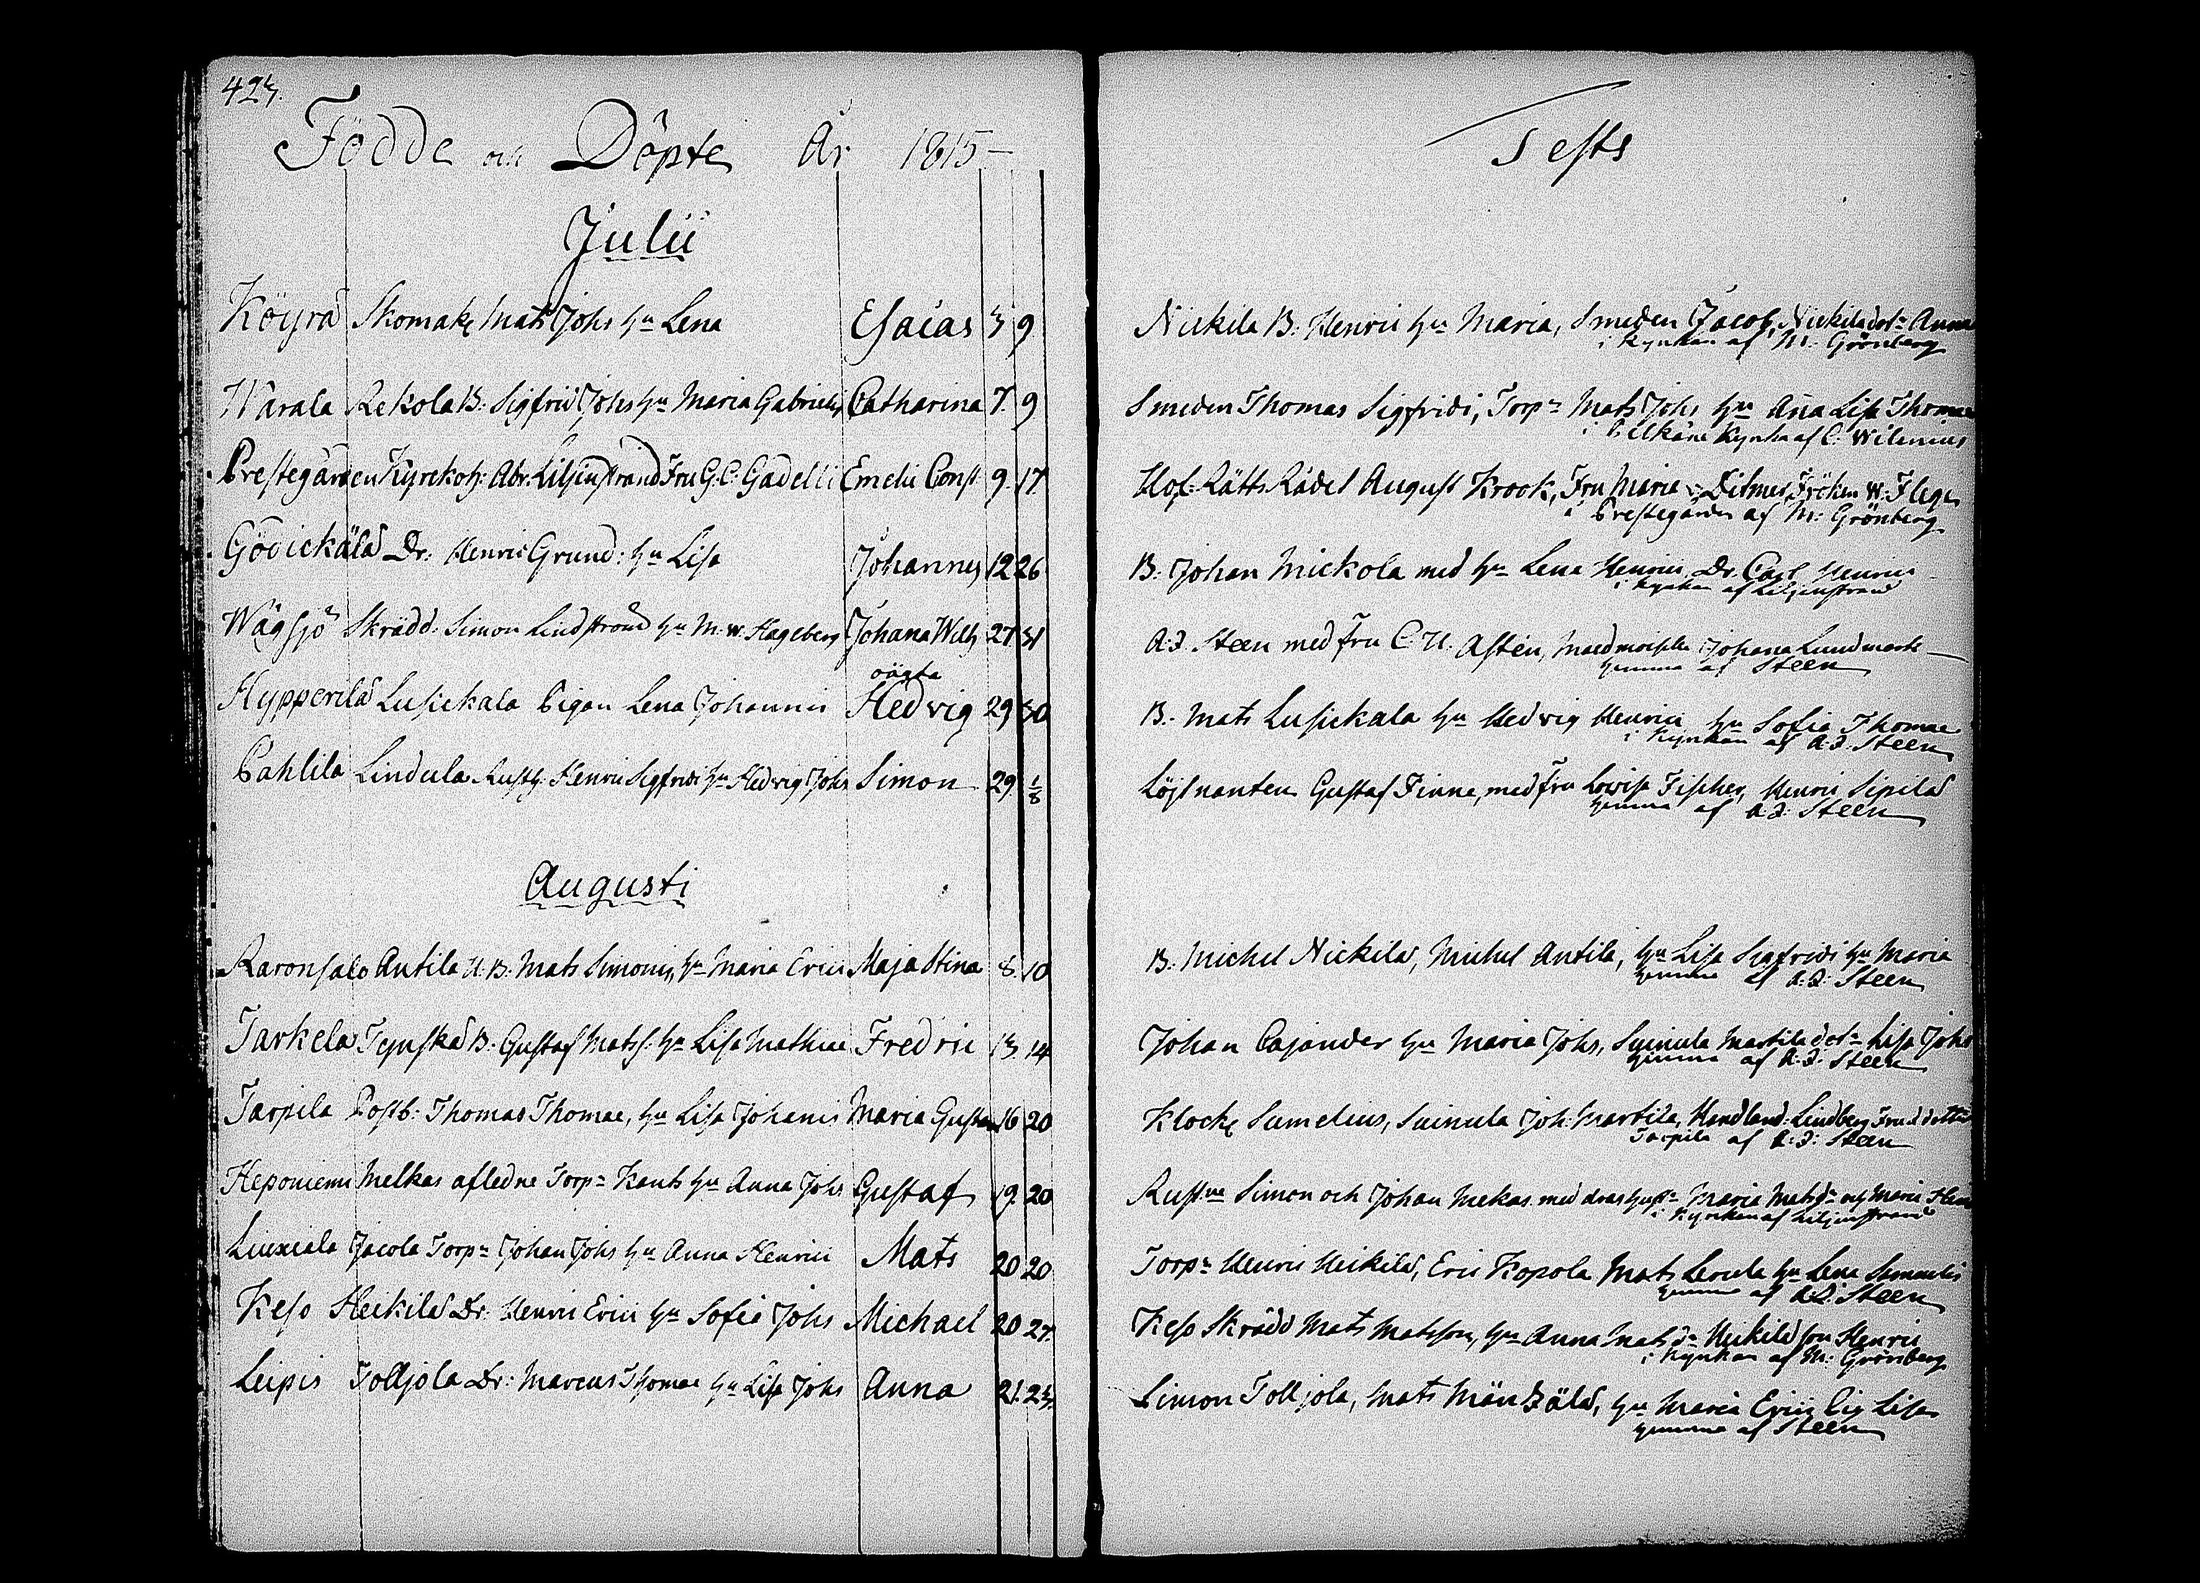 423.
Födde och Döpte År 1815 —
Julii
Köyrä Skomak Mats Johs hu Lena Esaias 3 9
Warala Rekola B: Sigfrid Johs hu Maria Gabrielis Catharina 7. 9
Prestegården Kyrckoh: Abr. Liljenstrand Fru G. C. Gadelli Emelie Const 9. 17.
Gödickälä Dr: Henric Grund: hu Lisa Johannes 12 26
Wägsjö Skrädd. Simon Lindström hu M. W. Hageberg Johana Wilh 27. 31
oägta
Hypperilä Lusickala Pigan Lena Johannis Hedvig 29 30
Pahlila Lindula Rusth: Henric Sigfridi hu Hedvig Johs Simon 29. 1/8
Augusti
Raronsalo Antila U. B. Mats Simonis, hu Maria Erici Maja Stina 8. 10
Tarkela B. Gustaf Mats s. hu Lisa Mathiae Fredric 13 14
Tarpila Postb: Thomas Thomae, hu Lisa Johanis Maria Gustava 16 20
Heponiemi Melkas afledne Torp:n hu Anna Johs Gustaf 19. 20
Liuxiala Jacola Torp:n Johan Johs hu Anna Henrici Mats 20 20
Keso Heikilä Dr: Henric Erici hu Sofia Johs Michael 20 27.
Leipis Tolljola Dr: Marcus Thomae hu Lisa Johs Anna 21. 23.
Tests
Nickila B: Henric hu Maria, Smeden Jacob, Nickila dotr Anna
i Kyrkan af M: Grönberg
Smeden Thomas Sigfridi, Torp:n Mats Johs hu Aña Lisa Thomae
i Pelkäne Kyrka af C. Wilenius
Hof: Rätts Rådet August Krook, Fru Maria Ditmer, Fröken W.
i Prestegården af M: Grönberg
B: Johan Mickola med hu Lena Henrici, Dr. Carl Henric
i Kyrkan af Liljenstrand
A: J. Steen med Fru C. U. Asten, Maedmoiselle Johana Lundmark —
hemma af Steen
B: Mats Lusickala hu Hedvig Henrici hu Sofia Thomae
i Kyrkan af A: J: Steen
Löjtnanten Gustaf Finne, med fru Lovisa Fischer, Henric Sipilä
hemma af A: J: Steen
B: Michel Nickilä, Michel Antila, hu Lisa Sigfridi hu Maria
hemma af A: J: Steen
Johan Cajander hu Maria Johs, Suinula Martila dotr Lisa Johs
hemma af A: J: Steen
Klock Sumelius, Suinula Joh: Martila, Handland: Lindberg
Tarpila af A: J: Steen
Simon och Johan Mekas med deras Maria och Maria
i Kyrkan af Liljenstrand
Torp:n Henric Heikilä, Eric Kopola Mats hu Lena Samuelis
hemma af A: J: Steen
Keso Skrädd Mats Matsson, hu Anna Mats dr Heikilä son Henric
i Kyrkan af M: Grönberg
Simon Tolljola, Mats hu Maria Erici Pig Lisa
hemma af Steen